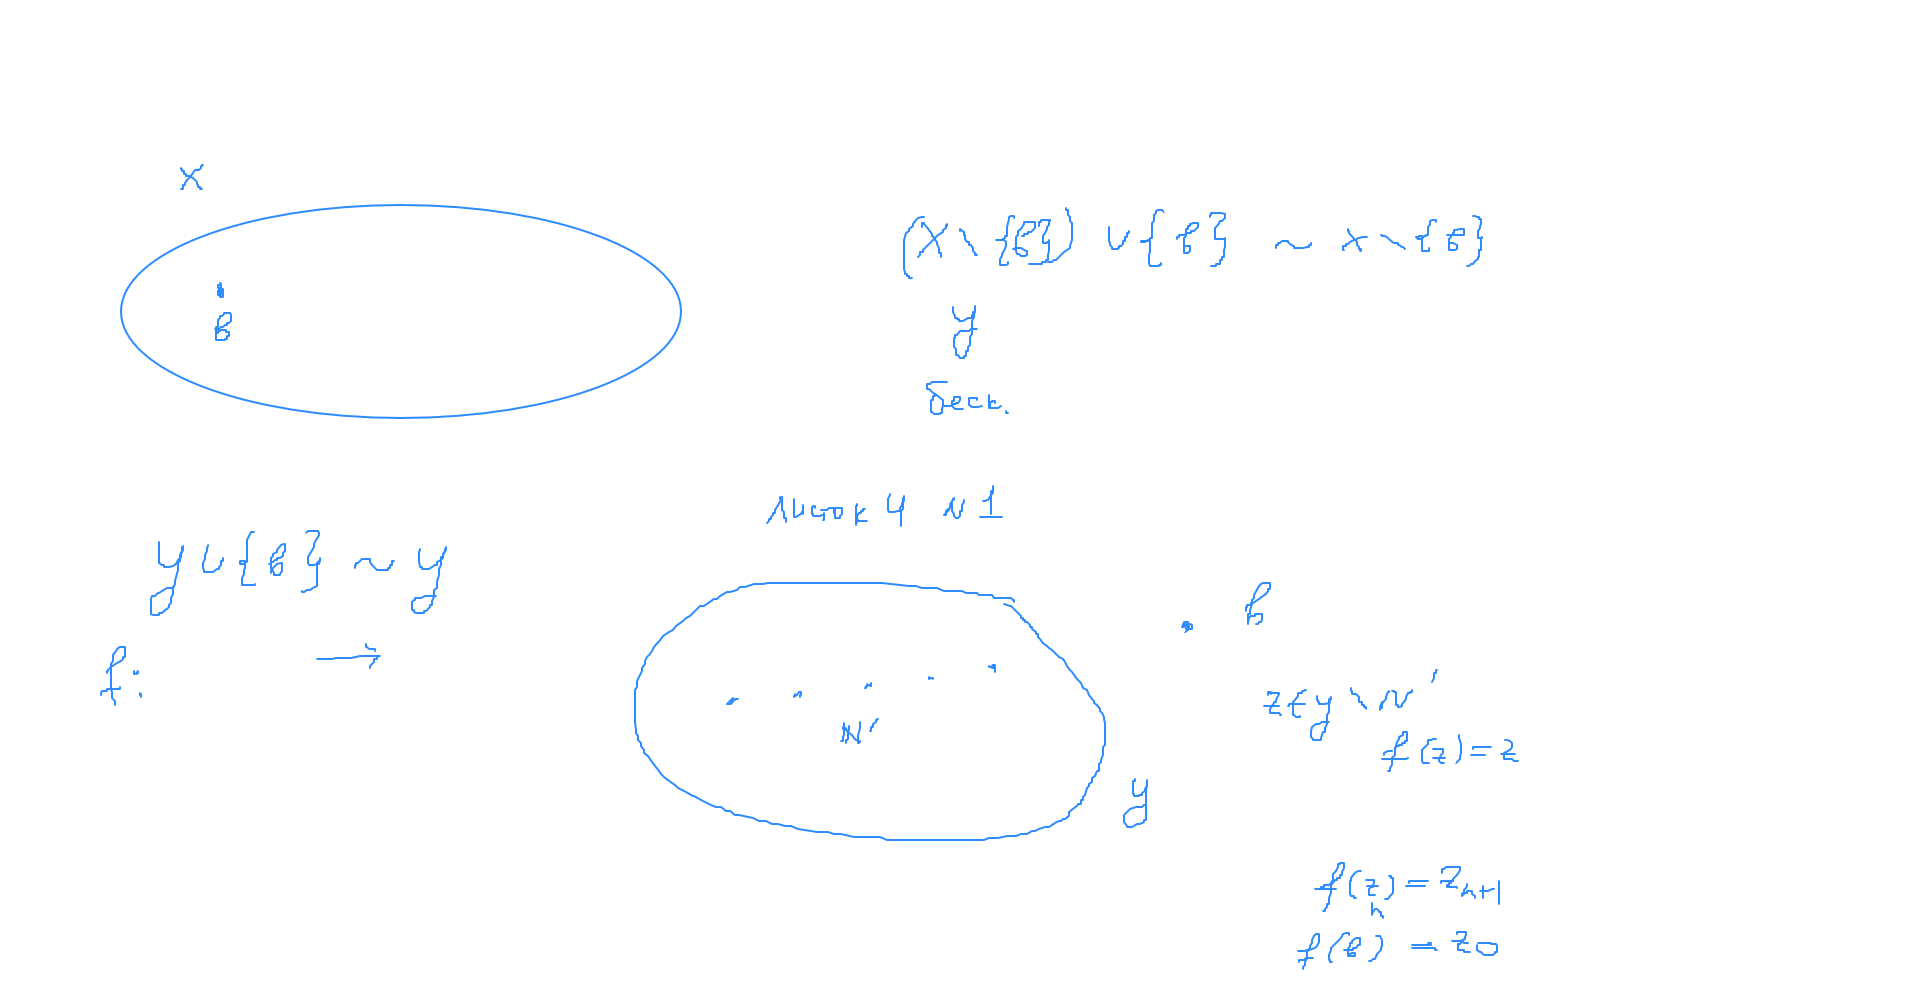 X
в
(X \ {в}) ∪ {в} ~ X \ {в}
y
беск.
Листок 4 N 1
y ∪ {в} ~ y
f: →
в
N'
z ∈ y \ N'
f(z) = z
y
f(z_n) = z_{n+1}
f(в) = z_0